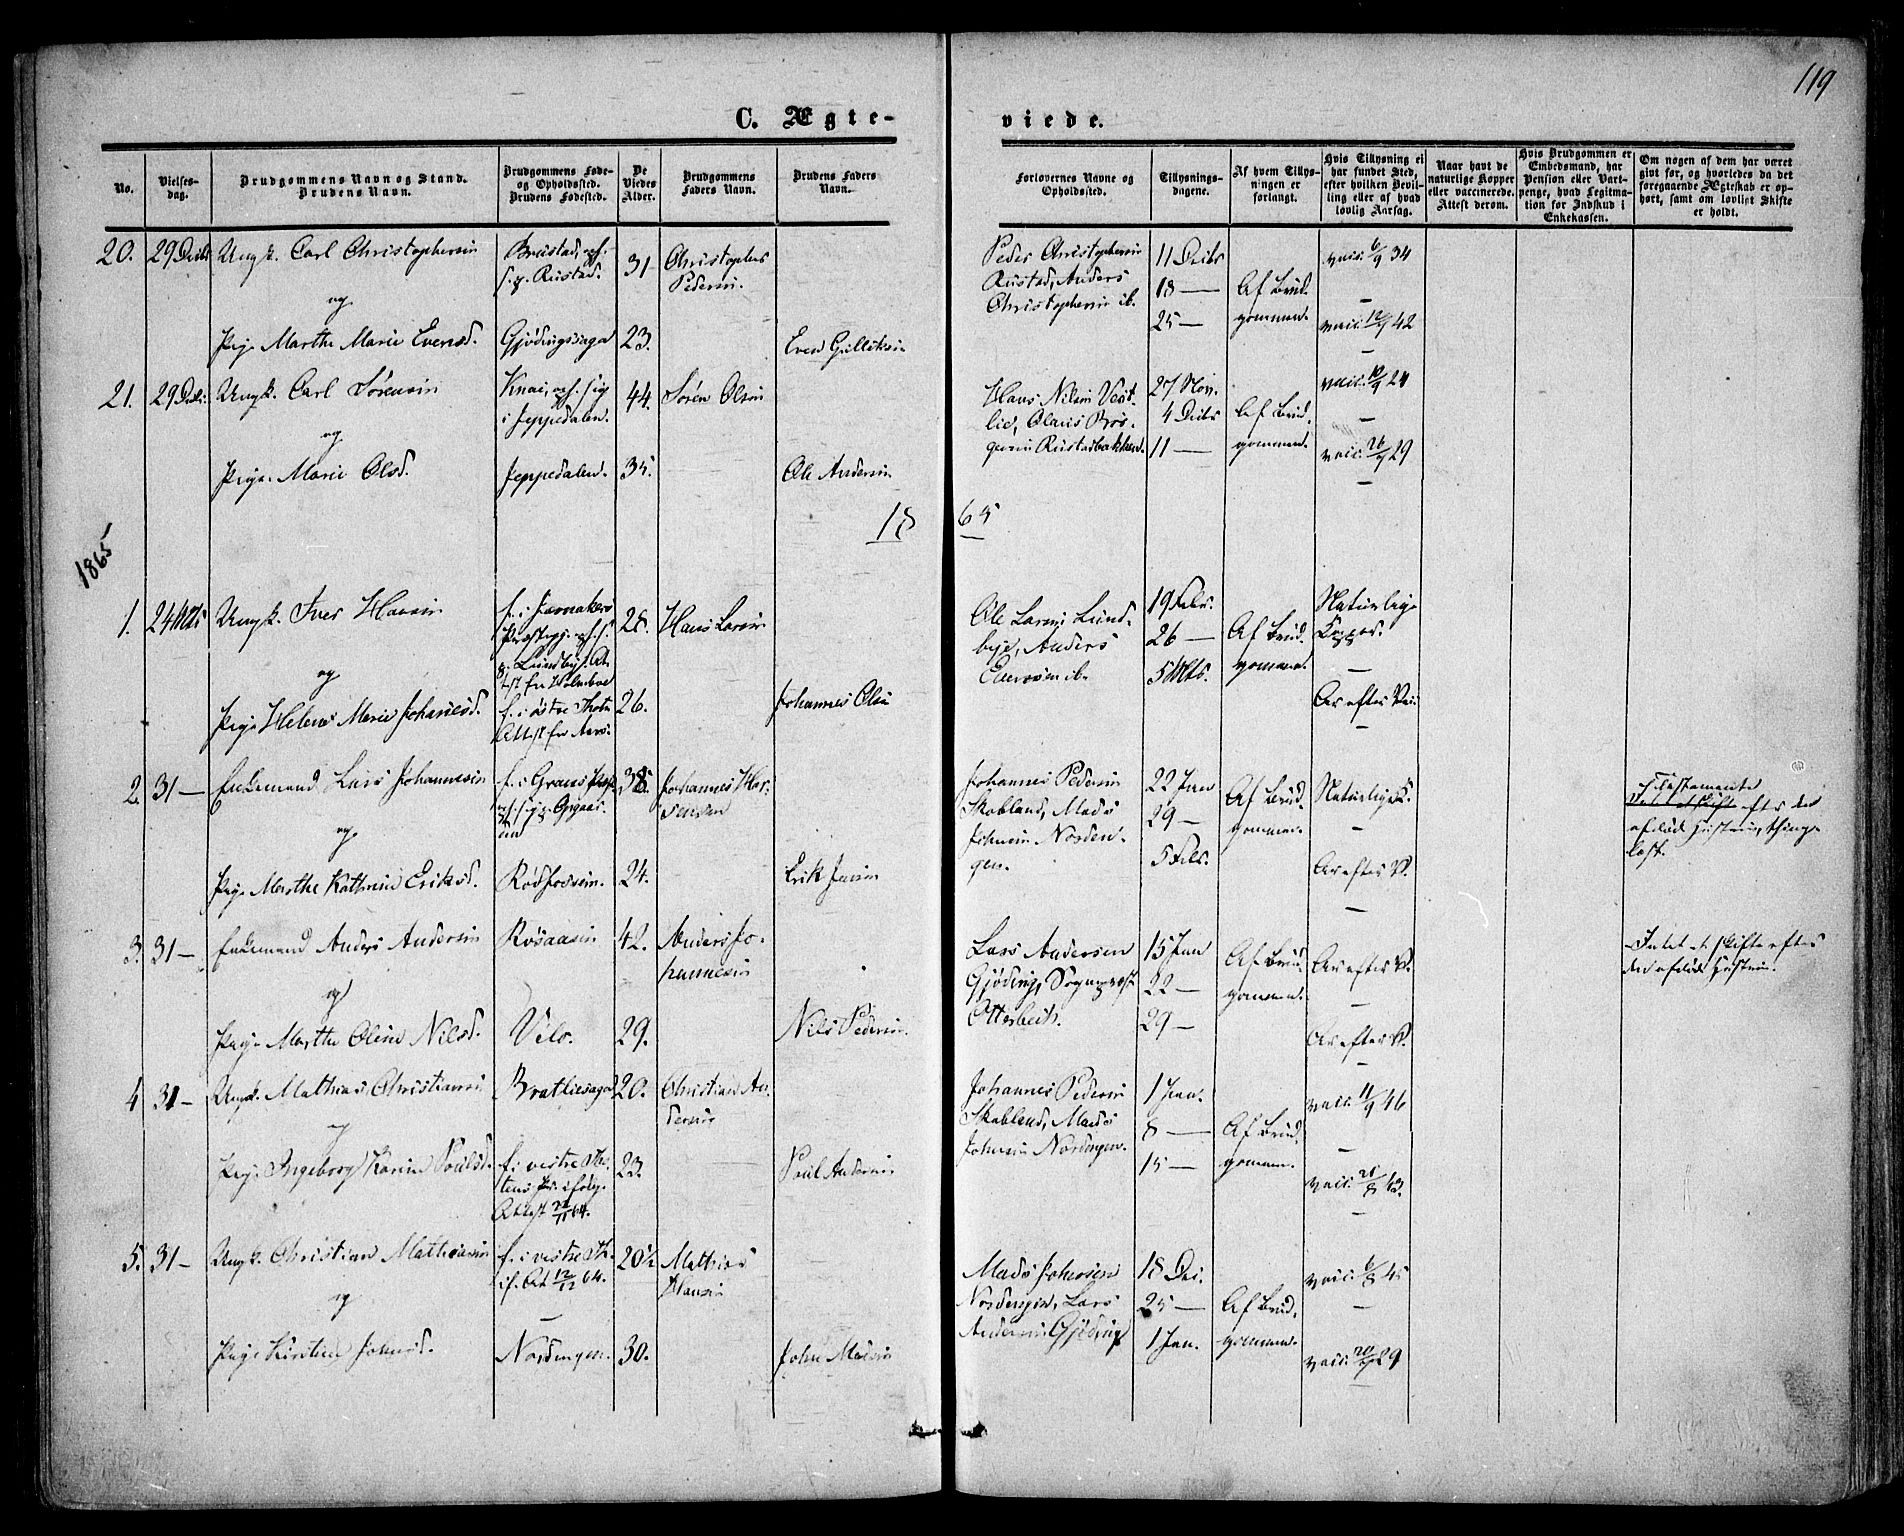 119
C. Ægte-
viede.
No.
Vielses-
dag.
Brudgommens Navn og Stand.
Brudens Navn.
Brudgommens Føde-
og Opholdssted.
Brudens Fødested.
De
Viedes
Alder.
Brudgommens
Faders Navn.
Brudens Faders
Navn.
Forlovernes Navne og
Opholdssted.
Tillysnings-
dagene.
Af hvem Tillys-
ningen er
forlangt.
Hvis Tillysning ei
har fundet Sted,
efter hvilken Bevil-
ling eller af hvad
lovlig Aarsag.
Naar havt de
naturlige Kopper
eller vaccinerede.
Attest derom.
Hvis Brudgommen er
Embedsmand, har
Pension eller Vart-
penge, hvad Legitma-
tion for Indskud i
Enkekassen.
Om nogen af dem har været
givt før, og hvorledes da det
foregaaende Ægteskab er op-
hørt, samt om lovligt Skifte
er holdt.
20. 29 Decbr Ungk. Carl Christophersen
og
Pige Marthe Marie Evensd.
Rustad.
Gjødingssaga
31
23.
Christopher
Pedersen.
Even Gulliksen
Peder Christophersen
Rustad, Anders
Christophersen ib.
11 Decbr
18 —
25 —
Af Brud-
gommen.
vacc. 6/9 34
—
vacc. 12/9 42
—
21. 29 Decbr. Ungk. Carl Sørensen
og
Pige Marie Olsd.
i Jeppedalen.
Jeppedalen.
44.
35.
Søren Olsen
Ole Andersen
Hans Nilsen Vest-
lie, Olaus Brø-
gersen Rustadbakken.
27 Nov.
4 Decbr
11 —
Af Brud-
gommen.
vacc. 10/9 24
—
vacc. 26/9 29
—
18 65
1865
1. 24 Mts Ungk. Iver Hansen
og
Pige Helene Marie Johannesd.
f. i Jevnakers
f. i østre Thoten
28.
26.
Hans Larsen.
Johannes Olsen
Ole Larsen Lund-
bye, Anders
ib.
19 Febr.
26 —
5 Mts.
Af Brud-
gommen.
Naturlige
Kopper.
—
Ar efter Vac.
2. 31 — Enkemand Lars Johannesen
og
Pige Marthe Kathrine Eriksd.
f. i Grans
Rødfossen.
38.
24.
Johannes Hal-
Erik Jensen
Johannes Pedersen
Skobland, Mads
Johnsen Norden-
gen.
22 Jan
29 —
5 Febr.
Af Brud-
gommen.
Naturlige K.
—
Ar efter V.
—
efter den
afdøde Hustrue, thing-
læst.
3. 31 — Enkemand Anders Andersen
og
Pige Marthe Oline Nilsd.
Røsaasen
Velo.
42.
29.
Anders Jo-
hannesen
Nils Pedersen
Lars Andersen
Gjøding, Sogneprest
Otterbech.
15 Jan
22 —
29 —
Af Brud-
gommen.
Ar efter V.
—
Ar efter V.
Intet at skifte efter
den afdøde Hustrue.
4 31 — Ungk. Mathias Christiansen
og
Pige Ingeborg Karine Poulsd.
Brathiesaga
f. i vestre Tho-
tens
Attest 22/11 64.
20.
23.
Christian An-
dersen
Poul Andersen
Johannes Pedersen
Skobland, Mads
Johnsen Nordengen.
1 Jan.
8 —
15 —
Af Brud-
gommen.
vacc. 11/9 46
—
vacc. 21/8 43.
—
5. 31 — Ungk. Christian Mathiasen
og
Pige Kirstine Johnsd.
f. i vestre Th.
12/12 64.
—
Nordengen.
20½
30.
Mathias
Hansen
John Madsen
Mads Johnsen
Nordengen, Lars
Andersen Gjøding
18 Dec.
25 —
1 Jan.
Af Brud-
gommen.
vacc. 6/8 45
—
vacc. 20/9 29
—